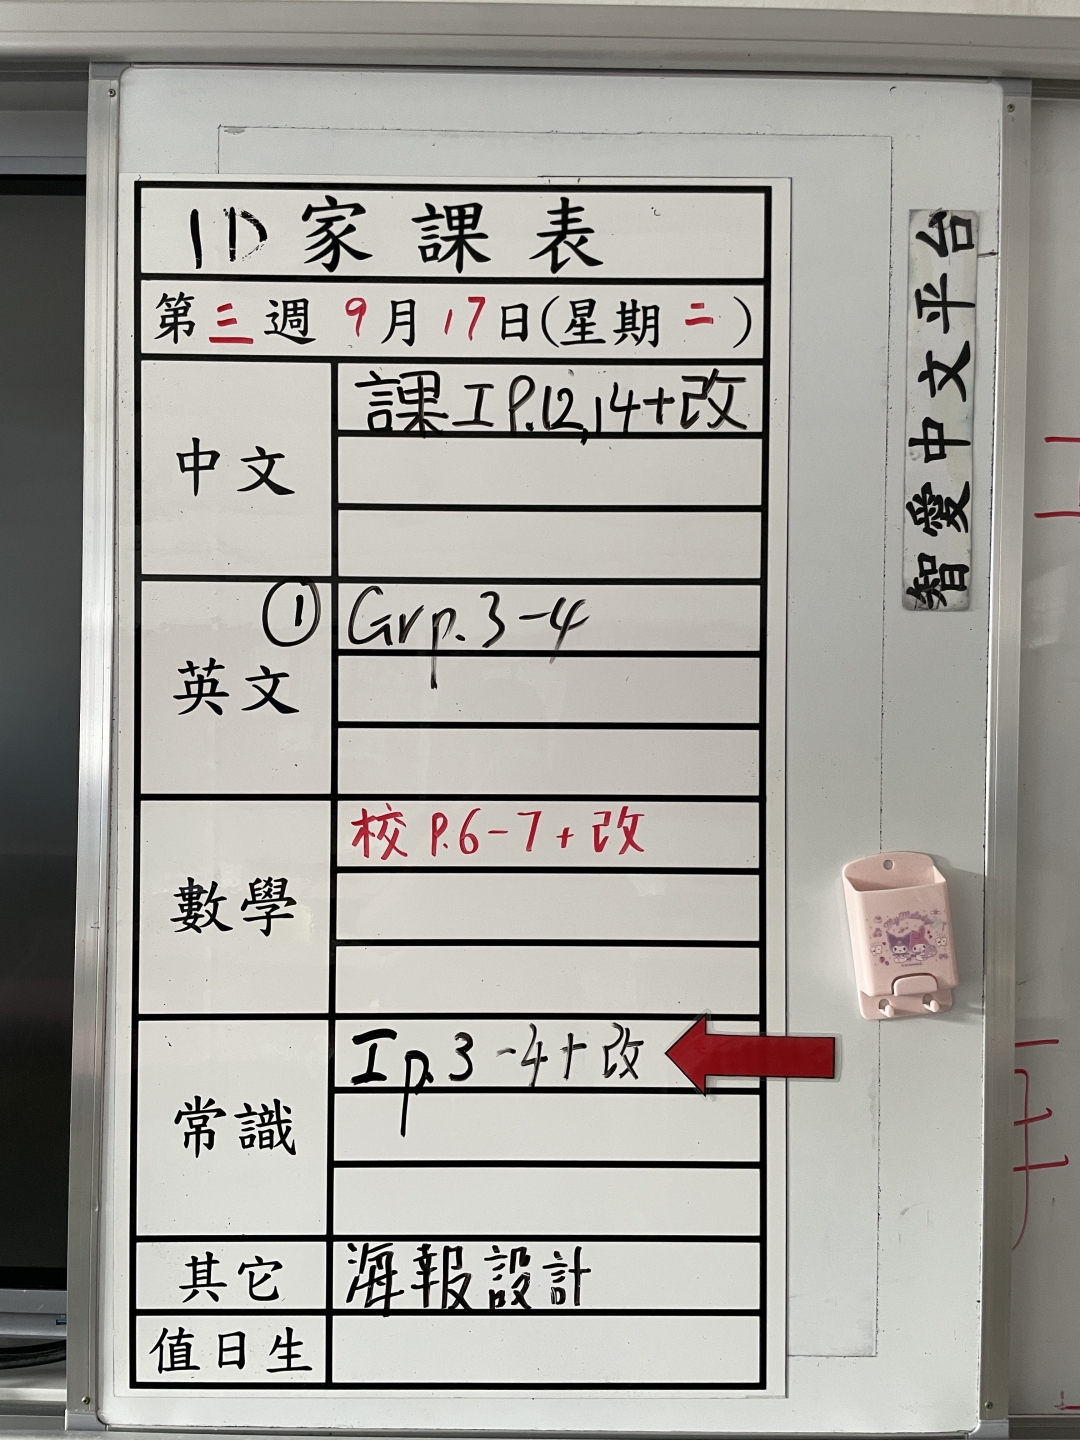 1D家課表
第三週 9月17日(星期二)
中文
課工P.12,14+改
英文
① Grp.3-4
數學
校P.6-7+改
常識
工p.3-4+改
其它
海報設計
值日生
智愛中文平台